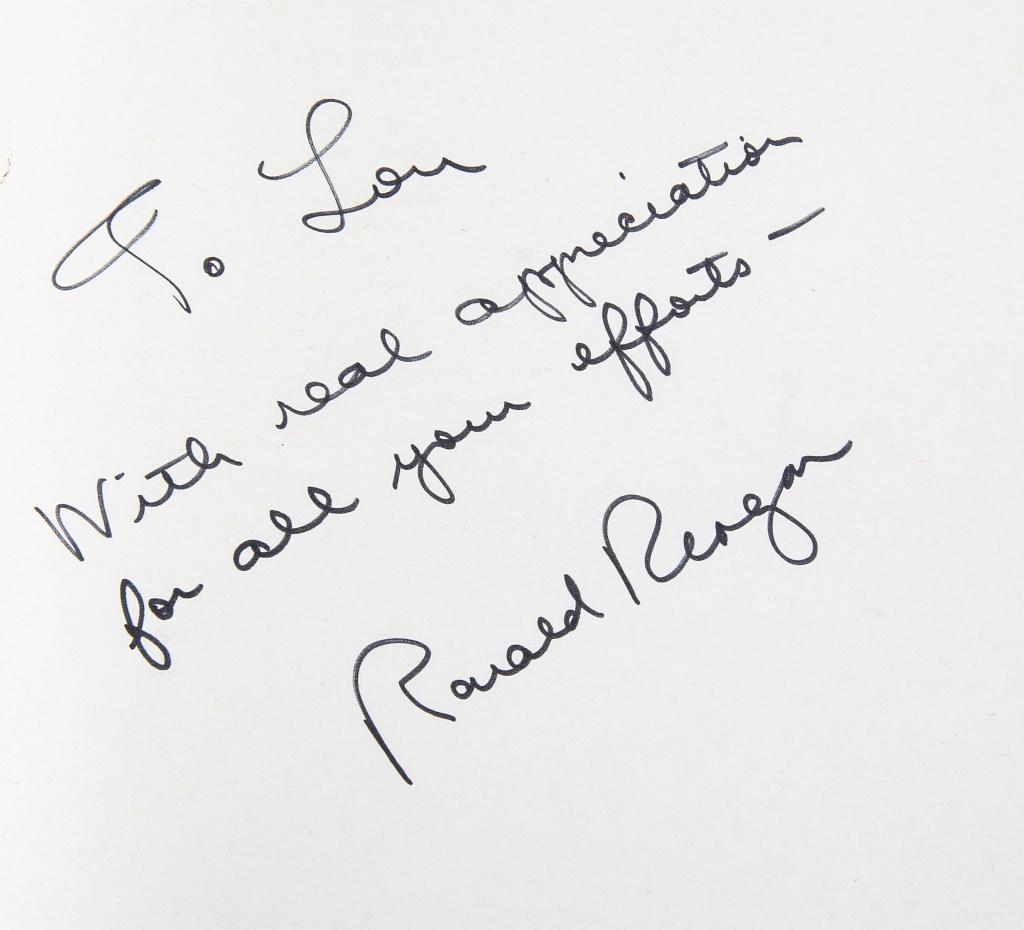 To Lou
With real appreciation
for all your efforts –
Ronald Reagan